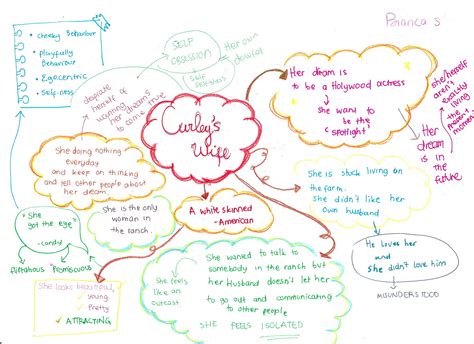 Perianca S
• Cheeky Behaviour
• Playfully Behaviour
• Egocentric
• Self-obsess
SELF OBSESSION
(Self Selfishness)
Her own
despite herself of
wanting her dreams
to come true
Curley's
Wife
Her dream is
to be a Holywood actress
She want to
be the
"spotlight"
she/herself
aren't
exactly
living
the
present
moment
Her
dream
is in
the
future
She doing nothing
everyday
and keep on thinking
and tell other people about
her dream
She is stuck living on
the farm.
She didn't like her
own husband
"She
got the eye"
-candy
She is the only
woman in
the ranch.
A white skinned
-American
He loves her
and
She didn't love him
MISUNDERSTOOD
flirtatious "Promiscuous"
She looks beautiful,
✓ young
✓ Pretty
✓ ATTRACTING
She feels
like an
outcast
She wanted to talk to
somebody in the ranch but
her Husband doesn't let her
to go out and communicating
to other people
SHE FEELS ISOLATED